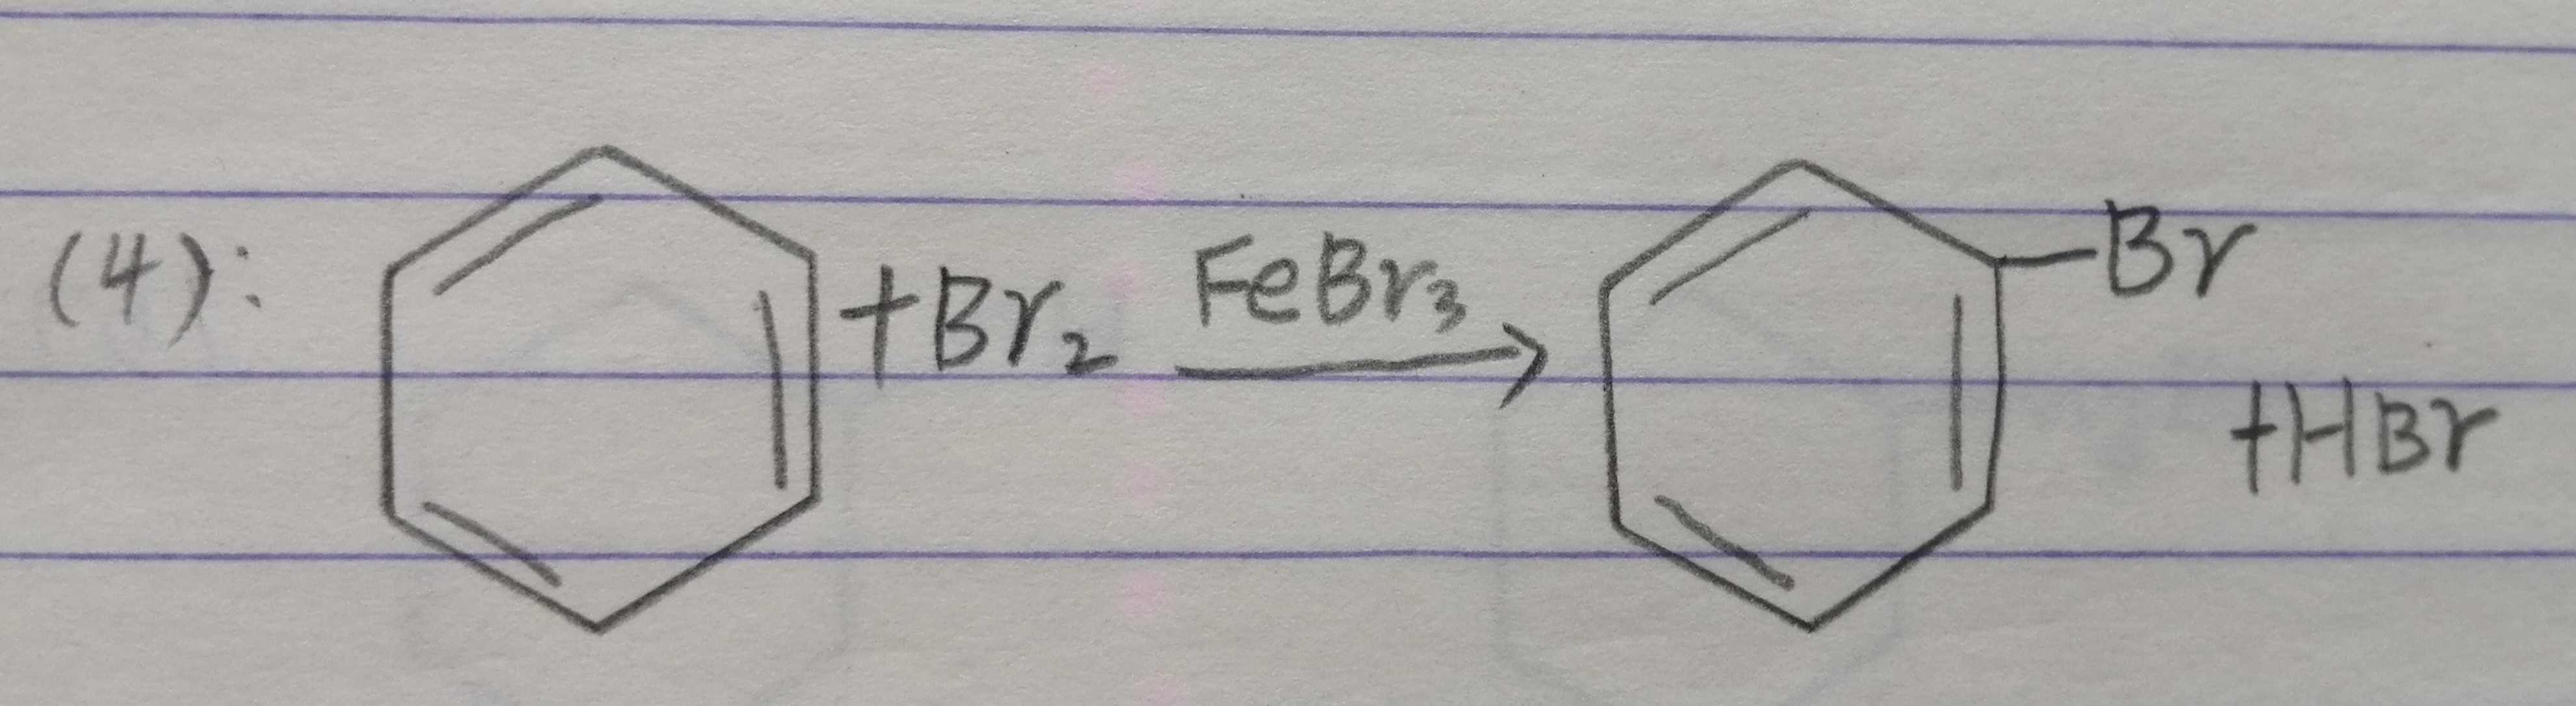 (4): +Br₂ FeBr₃ Br
+HBr